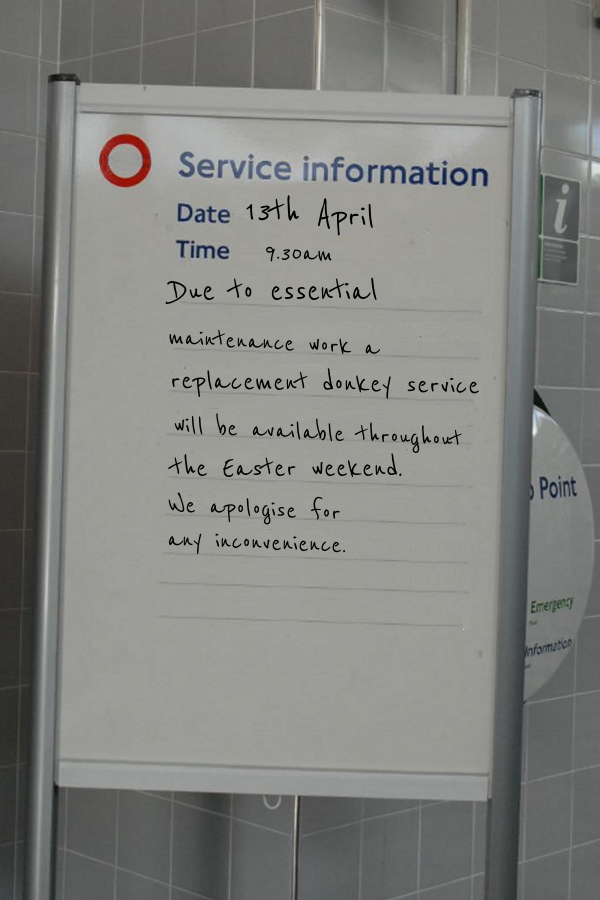 Service information
Date 13th April
Time 9.30am
Due to essential
maintenance work a
replacement donkey service
will be available throughout
the Easter weekend.
We apologise for
any inconvenience.
i
Point
Emergency
Information